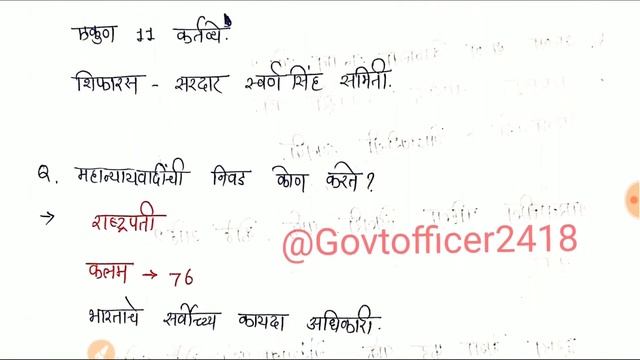 एकुण 11 कर्तव्ये.
शिफारस - सरदार स्वर्ण सिंह समिती.
Q. महान्यायवादींची निवड कोण करते?
→ राष्ट्रपती
@Govtofficer2418
कलम → 76
भारताचे सर्वोच्च कायदा अधिकारी.